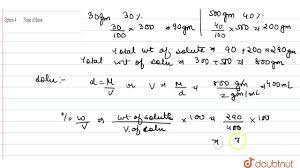 300gm 30% 500gm 40%
30/100 × 300 ⇒ 90gm 40/100 × 500 ⇒ 200gm
Total wt of solute ⇒ 90 + 200 ⇒ 290gm
Total wt of solu ⇒ 300 + 500 ⇒ 800gm
Solu :- d = M/V or V = M/d ⇒ 800 gm / 2 gm/ml ⇒ 400mL
% w/V or wt of solute / V. of solu × 100 ⇒ 290/400 × 100
⇒ 7
doubtnut